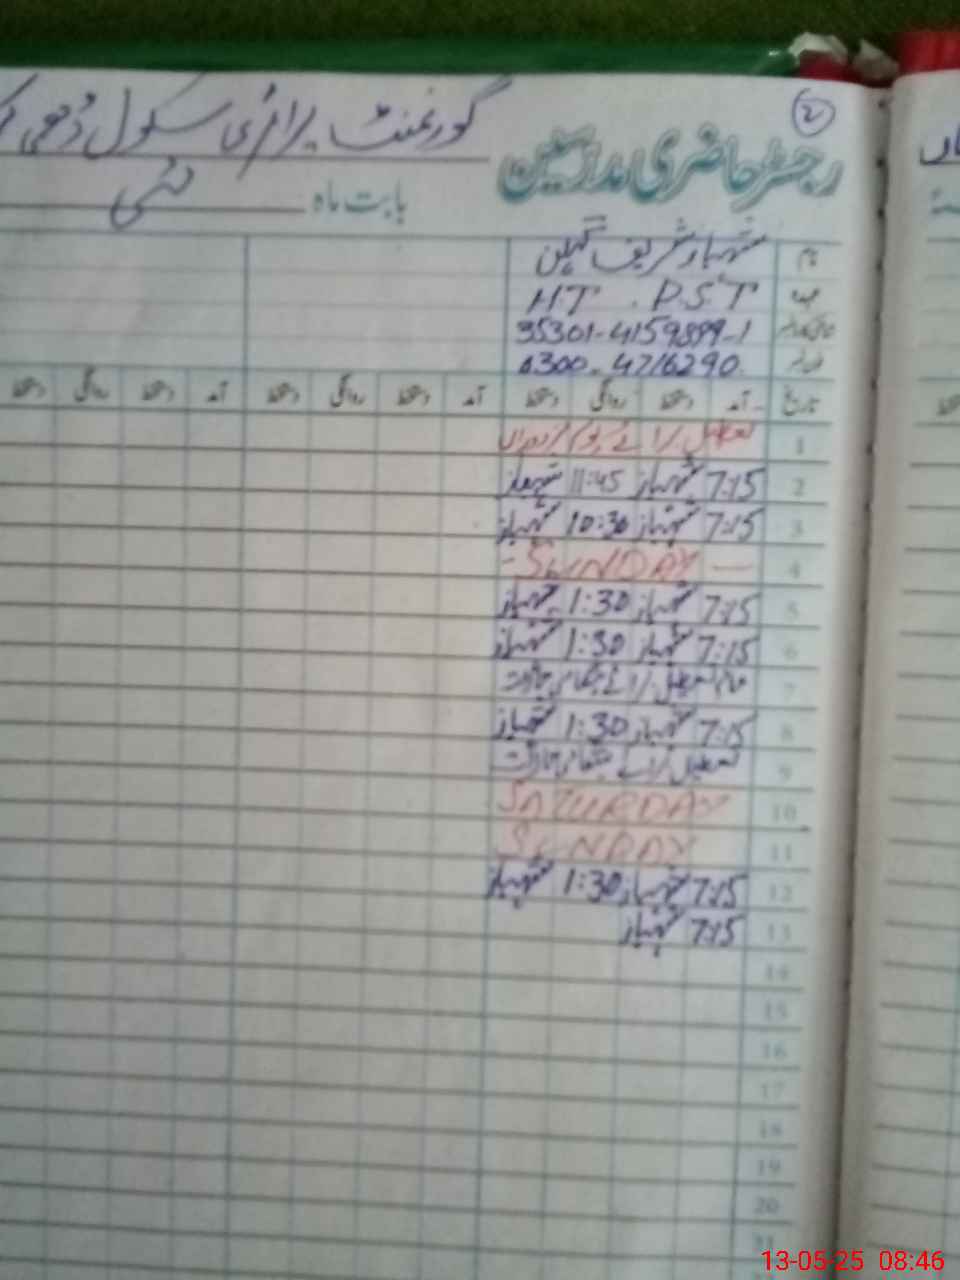 2
رجسٹر حاضری مدرسین گورنمنٹ پرائمری سکول
بابت ماہ مئی
نام شہباز شریف
عہدہ H.T P.S.T
35301-4159899-1
0300-4716290
تاریخ آمد دستخط روانگی دستخط آمد دستخط روانگی دستخط
1 تعطیل برائے یوم مزدوراں
2 7:15 شہباز 11:45 شہباز
3 7:15 شہباز 10:30 شہباز
4 — SUNDAY -
5 7:15 شہباز 1:30 شہباز
6 7:15 شہباز 1:30 شہباز
7 عام تعطیل برائے
8 7:15 شہباز 1:30 شہباز
9 تعطیل برائے
10 SATURDAY
11 SUNDAY
12 7:15 شہباز 1:30 شہباز
13 7:15 شہباز
14
15
16
17
18
19
20
21
13-05-25 08:46